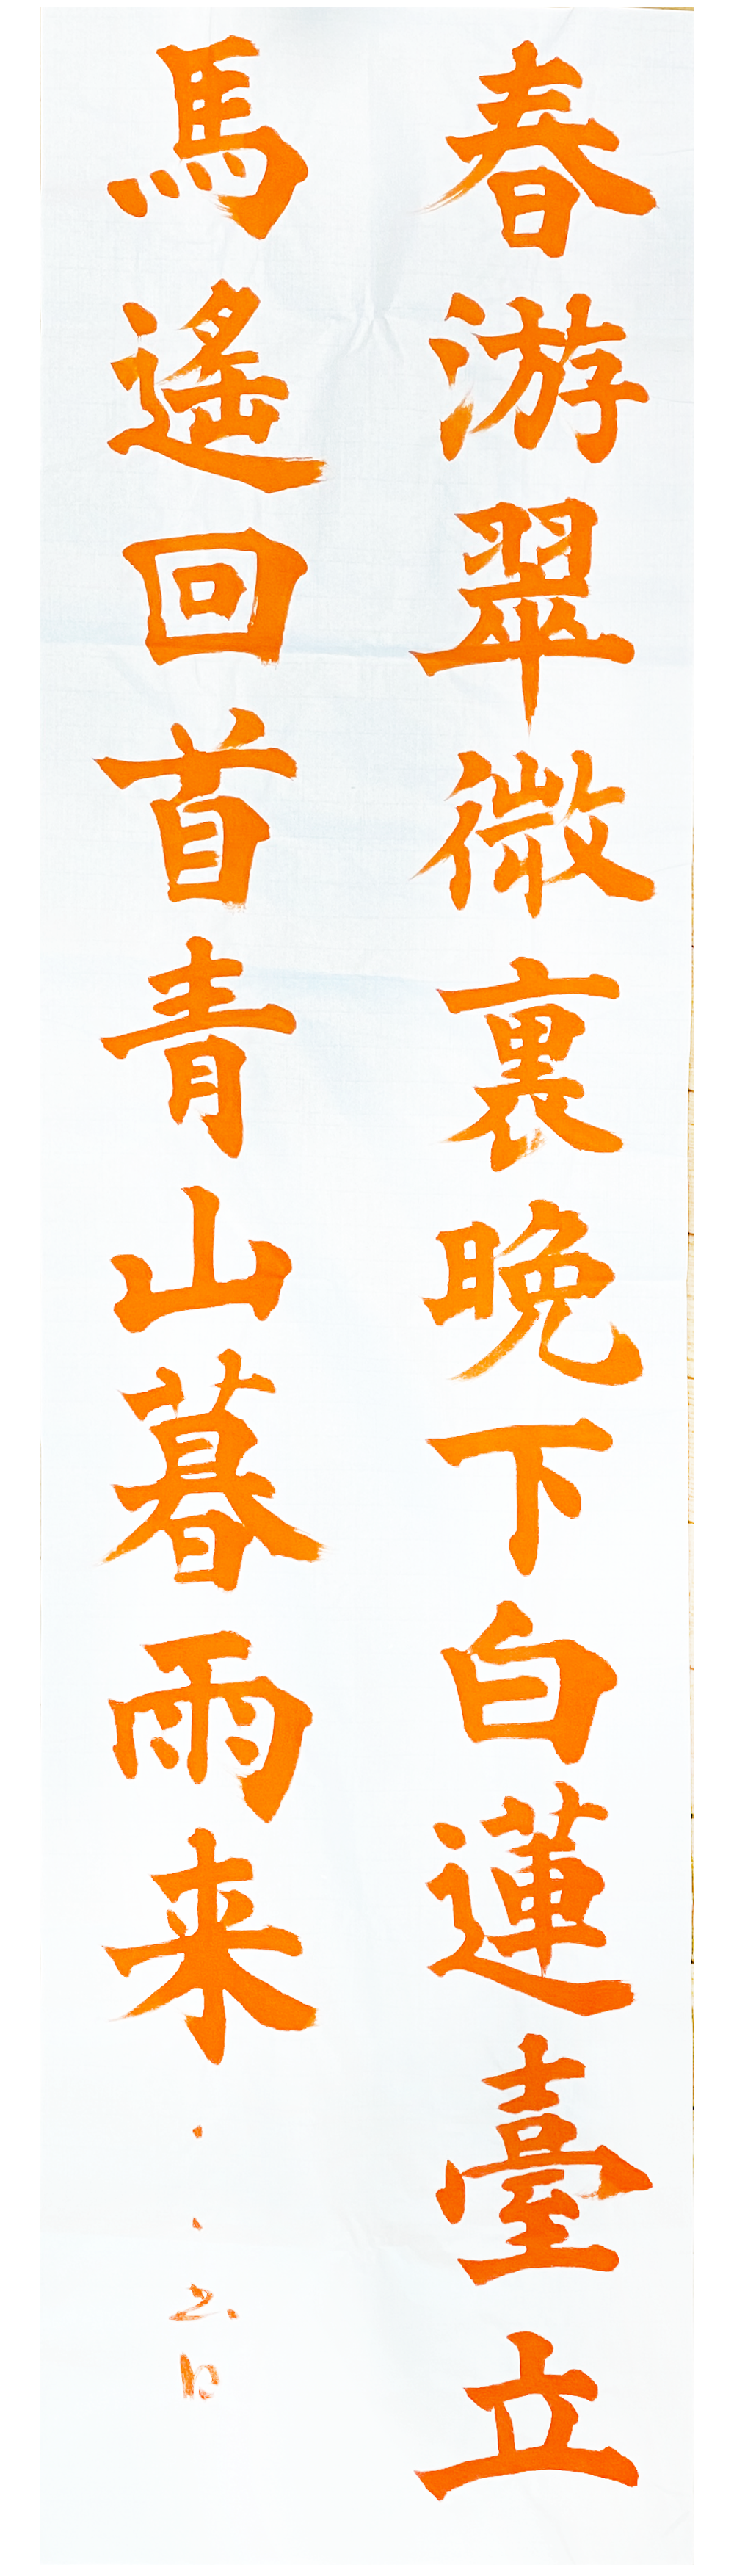 春游翠微裏晚下白蓮臺立
馬遙回首青山暮雨来